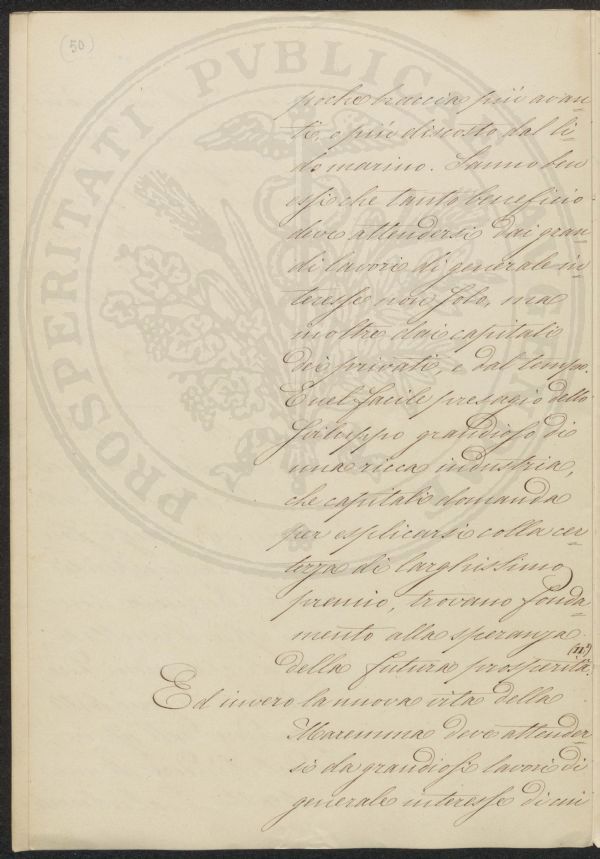 (50)
poche braccia più avan-
ti, o più discosto dal li-
do marino. Sanno ben
essi che tanto beneficio
deve attendersi dai gran-
di lavori di generale in-
teresse non solo, ma
inoltre dai capitali
dei privati, e dal tempo.
E nel facile presagio dello
sviluppo grandioso di
una ricca industria,
che capitali domanda
per esplicarsi colla cer-
tezza di larghissimo
premio, trovano fonda-
mento alla speranza
della futura prosperità.
Ed invero la nuova vita della
Maremma deve attender-
si da grandiosi lavori di
generale interesse di cui
PROSPERITATI PVBLICAE